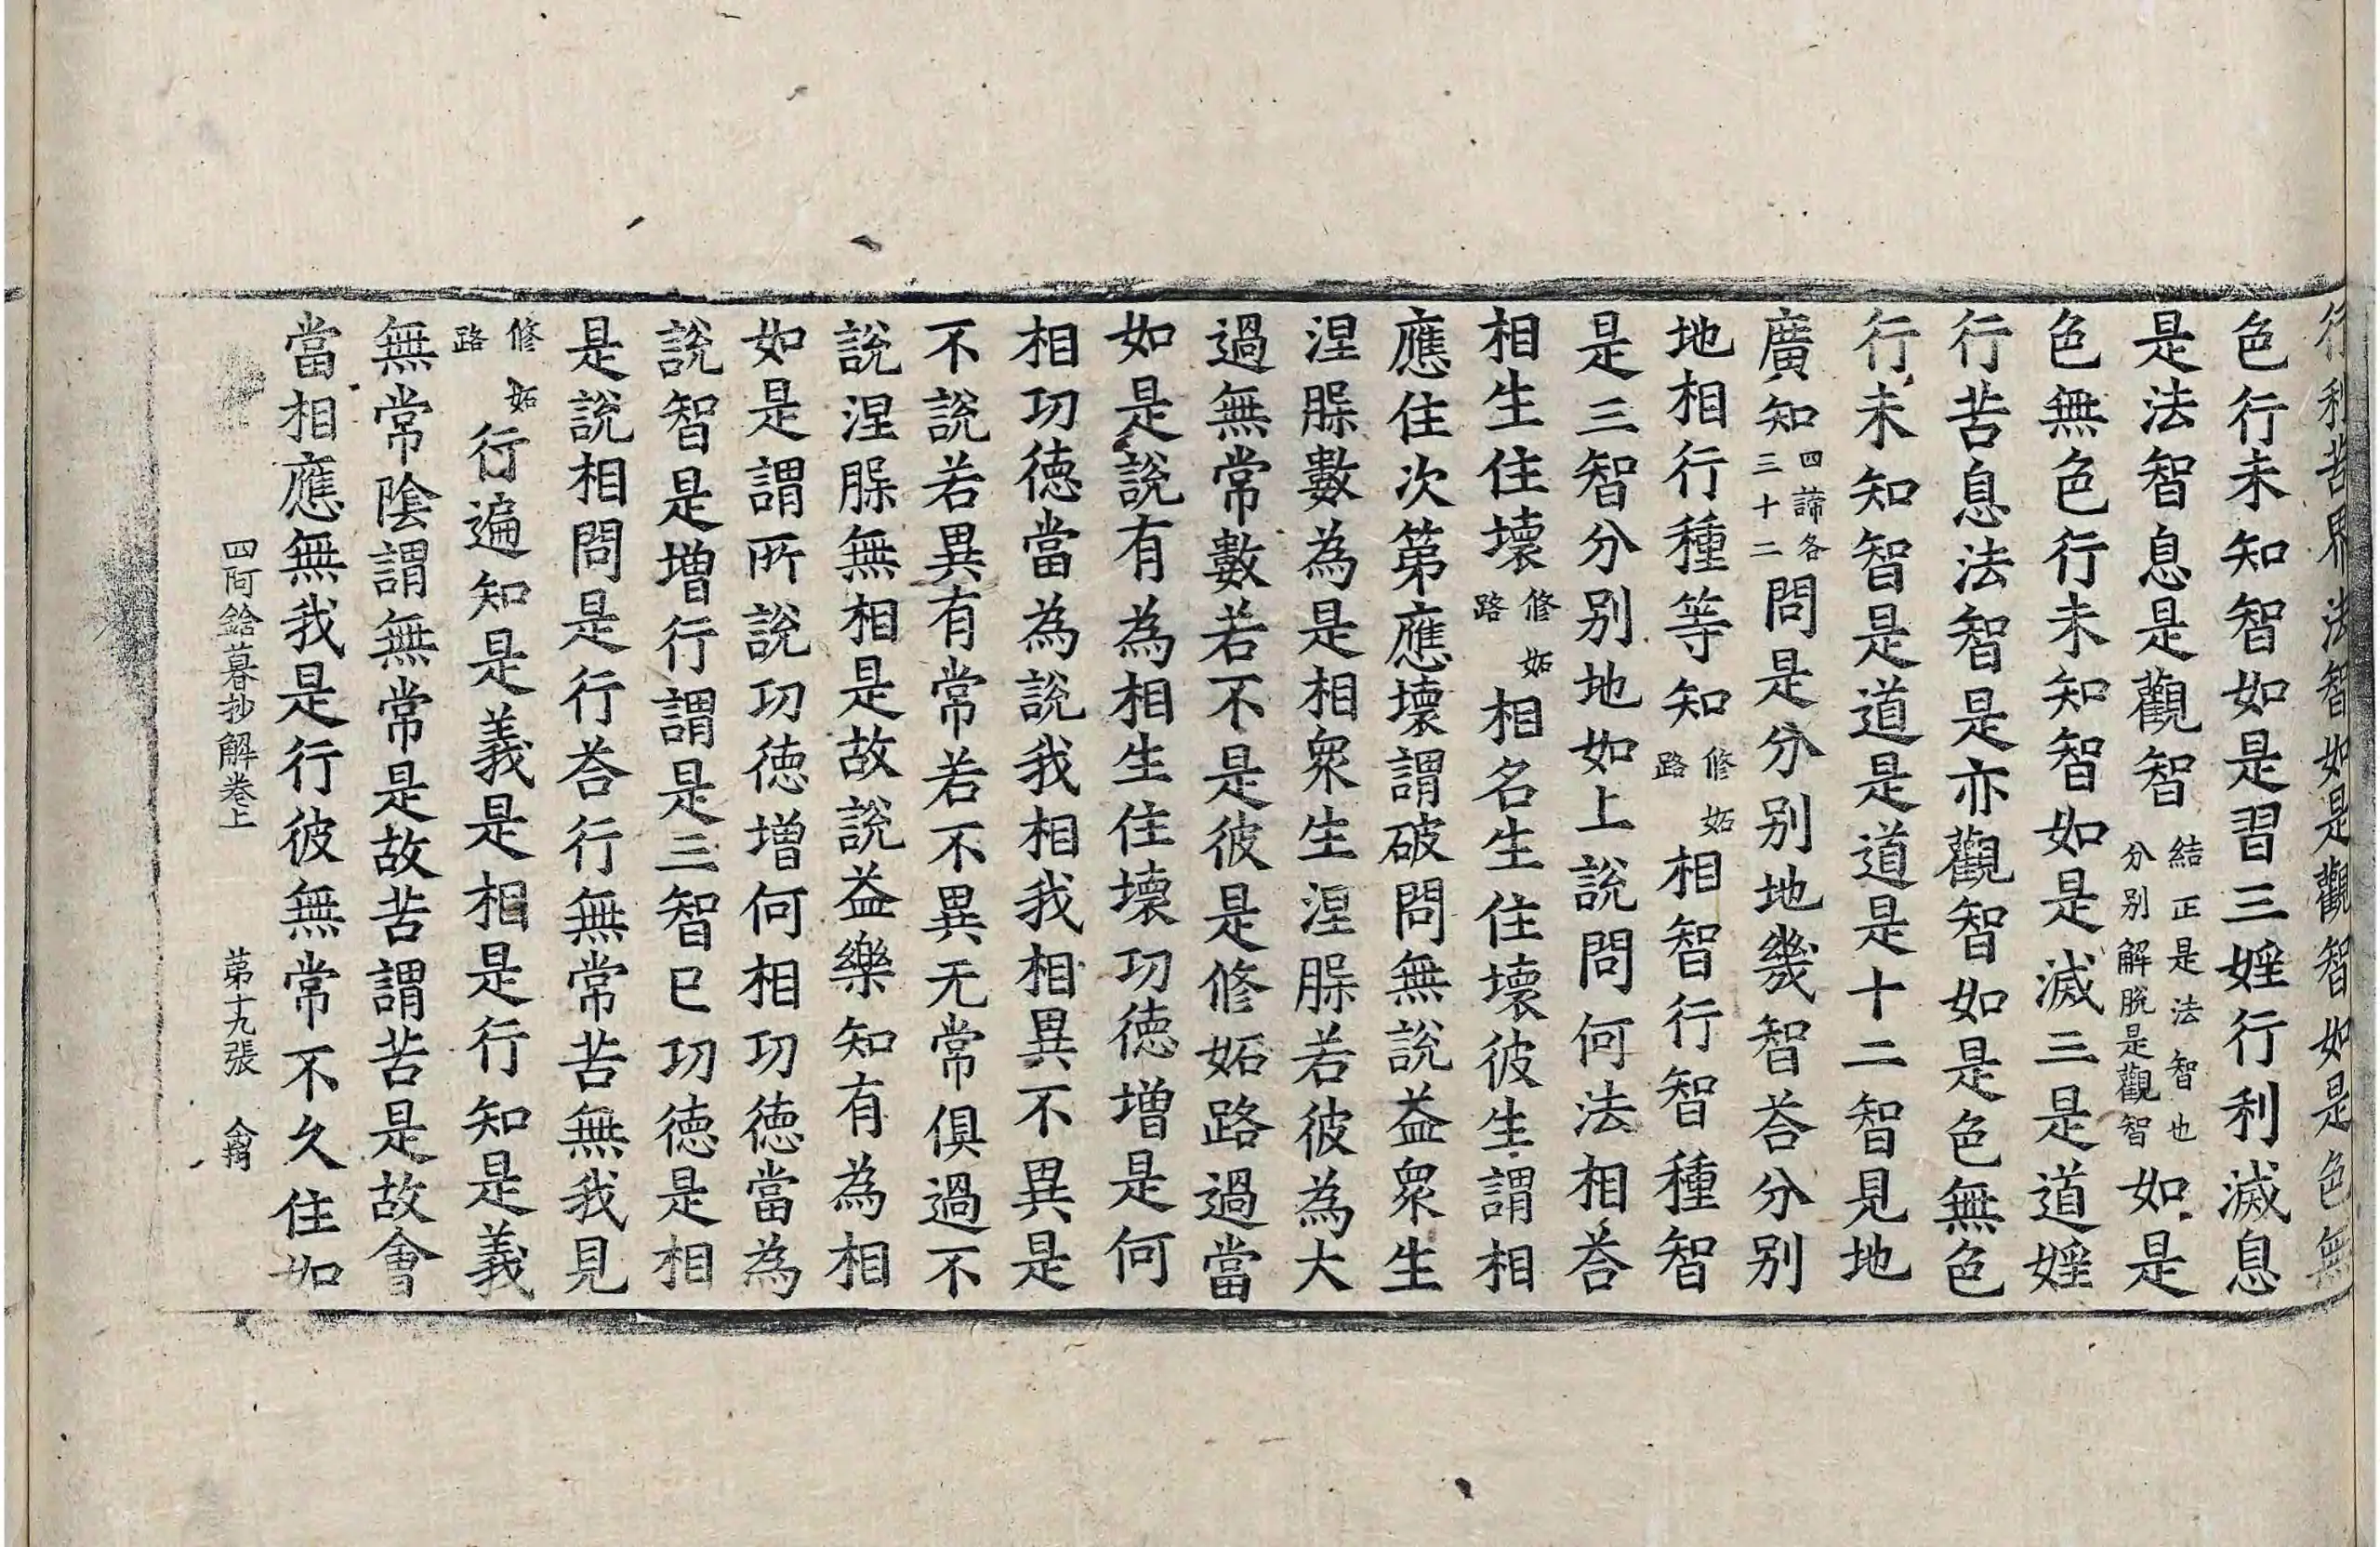 行利苦界法智如是觀智如是色無
色行未知智如是習三婬行利滅息
是法智息是觀智結正是法智也分别解脫是觀智如是
色無色行未知智如是滅三是道婬
行苦息法智是亦觀智如是色無色
行未知智是道是道是十二智見地
廣知四諦各三十二問是分别地幾智荅分别
地相行種等知修妬路相智行智種智
是三智分别地如上說問何法相荅
相生住壞修妬路相名生住壞彼生謂相
應住次第應壞謂破問無說益衆生
涅腂數為是相衆生涅腂若彼為大
過無常數若不是彼是修妬路過當
如是說有為相生住壞功德增是何
相功德當為說我相我相異不異是
不說若異有常若不異无常俱過不
說涅腂無相是故說益樂知有為相
如是謂所說功德增何相功德當為
說智是增行謂是三智已功德是相
是說相問是行荅行無常苦無我見
修妬路行遍知是義是相是行知是義
無常陰謂無常是故苦謂苦是故會
當相應無我是行彼無常不久住如
四阿鋡暮抄解卷上　第十九張